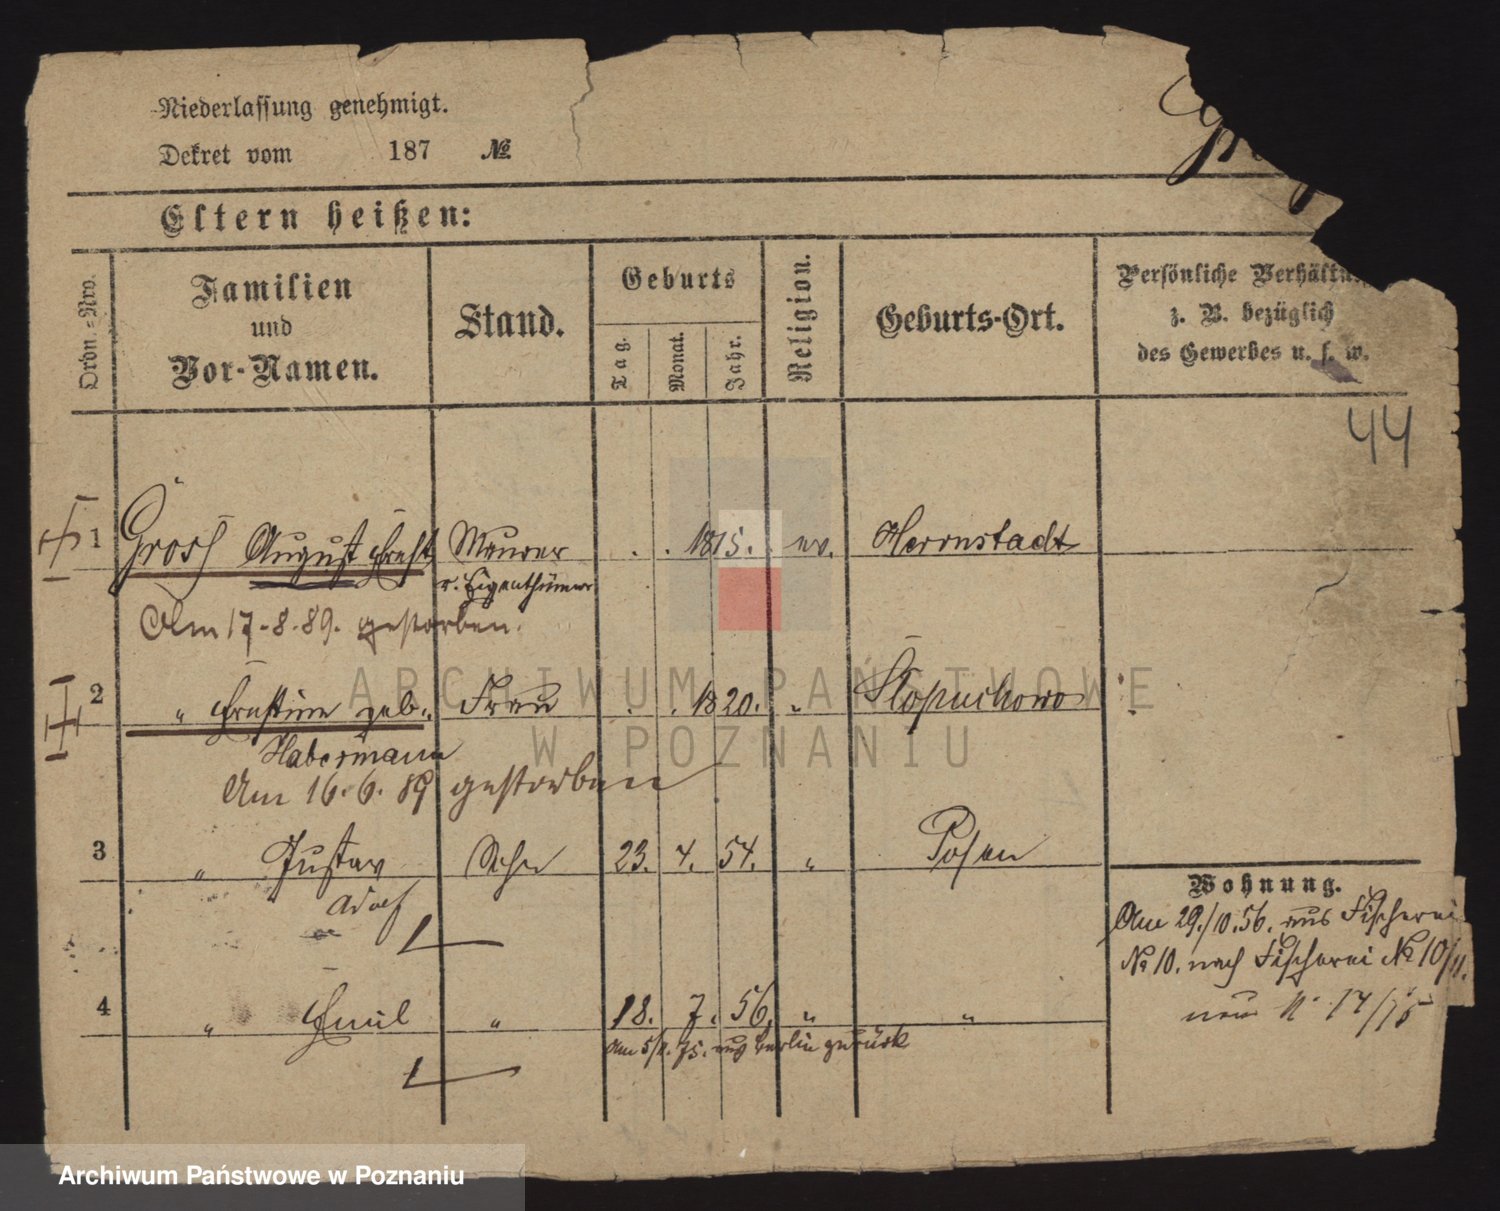 Niederlassung genehmigt.
Dekret vom 187 №
Eltern heißen:
Ordn.-Nro.
Familien
und
Vor-Namen.
Stand.
Geburts
Tag.
Monat.
Jahr.
Religion.
Geburts-Ort.
Persönliche
z. B. bezüglich
des Gewerbes u. s. w.
44
1 Grosß August Ernst Maurer . . 1815. ev. Herrnstadt
u. Eigenthümer
Am 17.8.89. gestorben.
2 " Ernstine geb. Frau . . 1820. " Slopuchowo
Habermann
Am 16.6.89 gestorben
3 " Gustav Sohn 23. 4. 54. " Posen
Adolf
Wohnung.
Am 29./10.56. aus Fischerei
№ 10. nach Fischerei № 10/11.
neu N. 14/15
4 " Emil " 18. 7. 56. " "
Am 75. aus Berlin zurück
ARCHIWUM PAŃSTWOWE
W POZNANIU
Archiwum Państwowe w Poznaniu